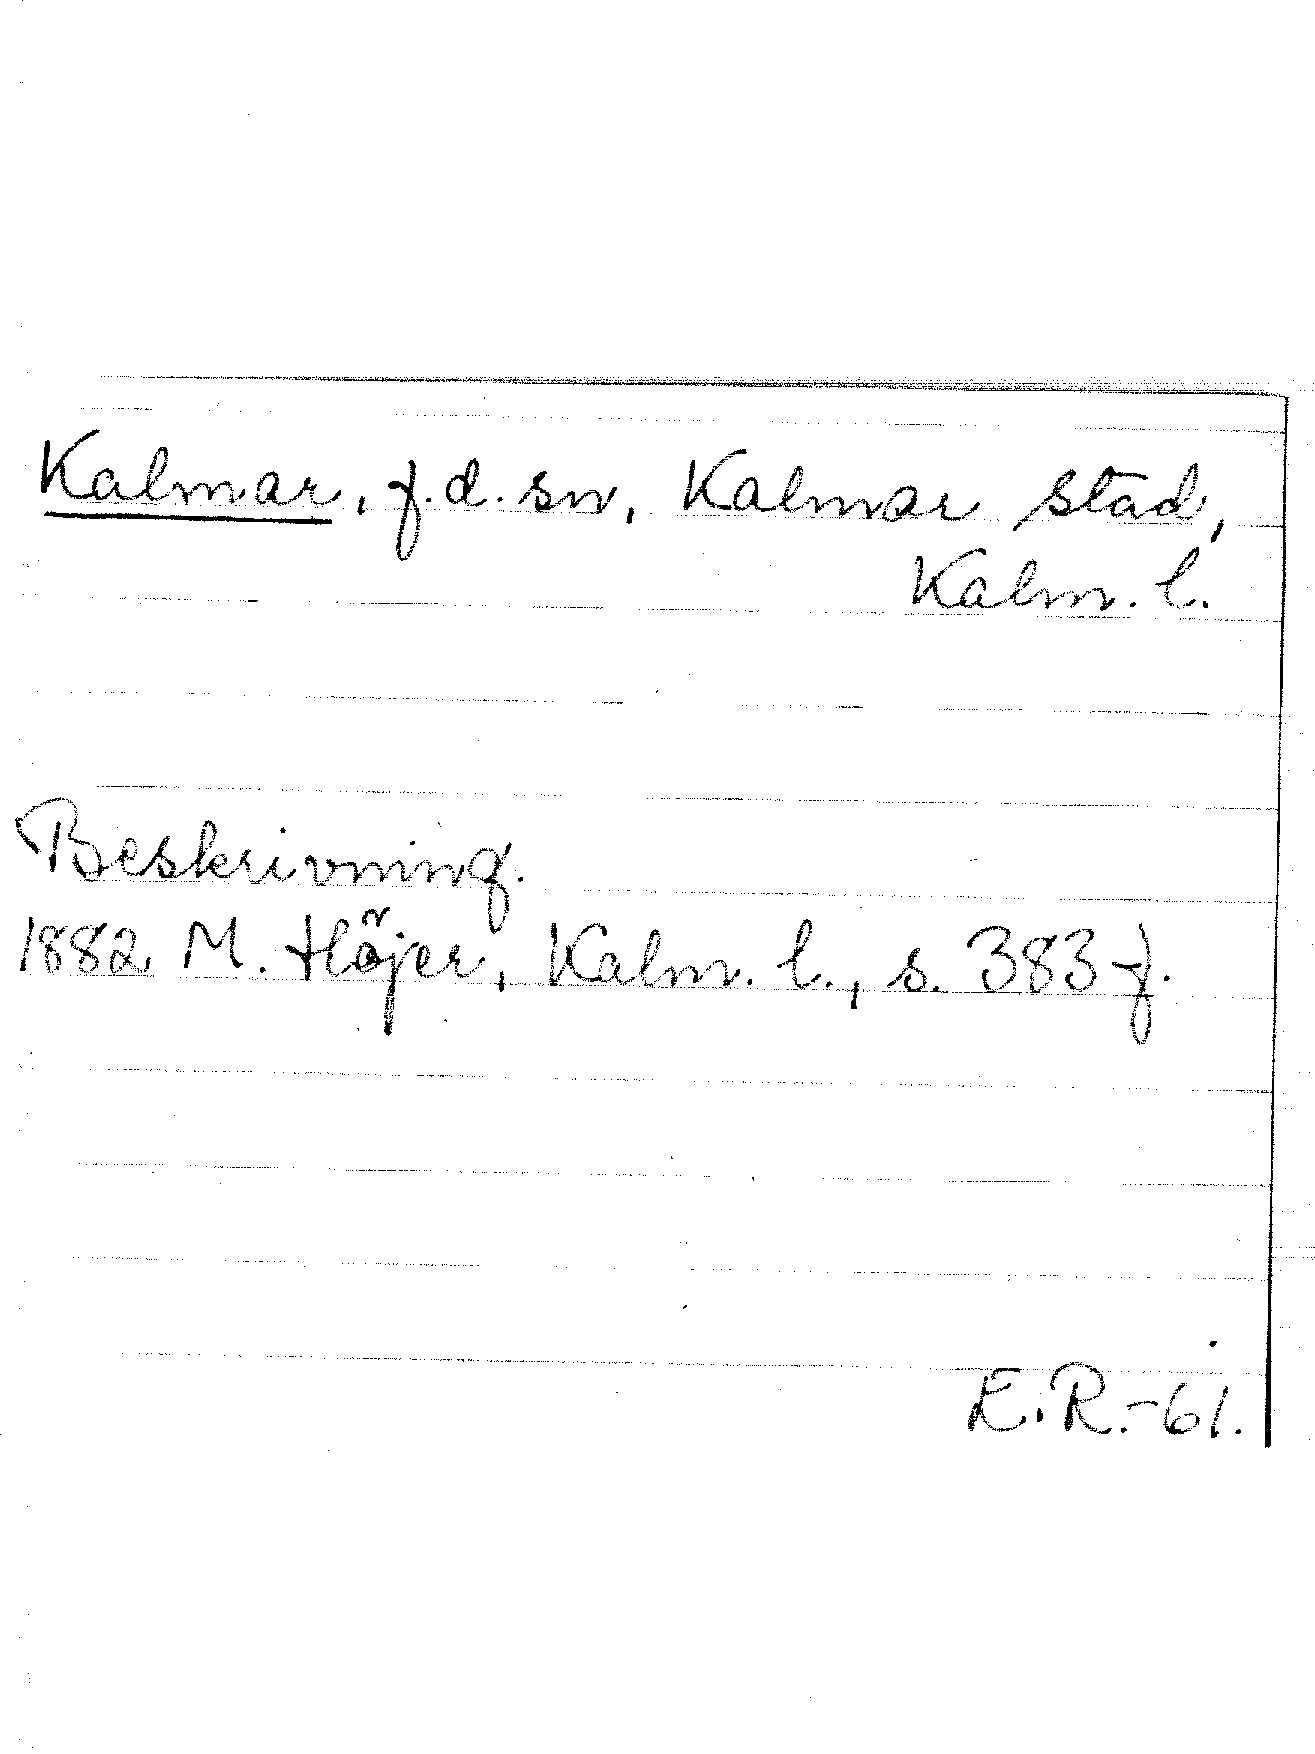 Kalmar, f.d. sn, Kalmar stad,
Kalm. l.
Beskrivning.
1882 M. Höjer, Kalm. l., s. 383 f.
E.R.-61.